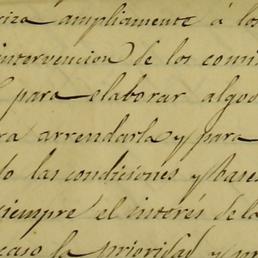 riza ampliamente á los
intervencion de los comi
para elaborar algod
ra arrendarla y para
do las condiciones y bases
siempre el interés de la
caso la prioridad y pr